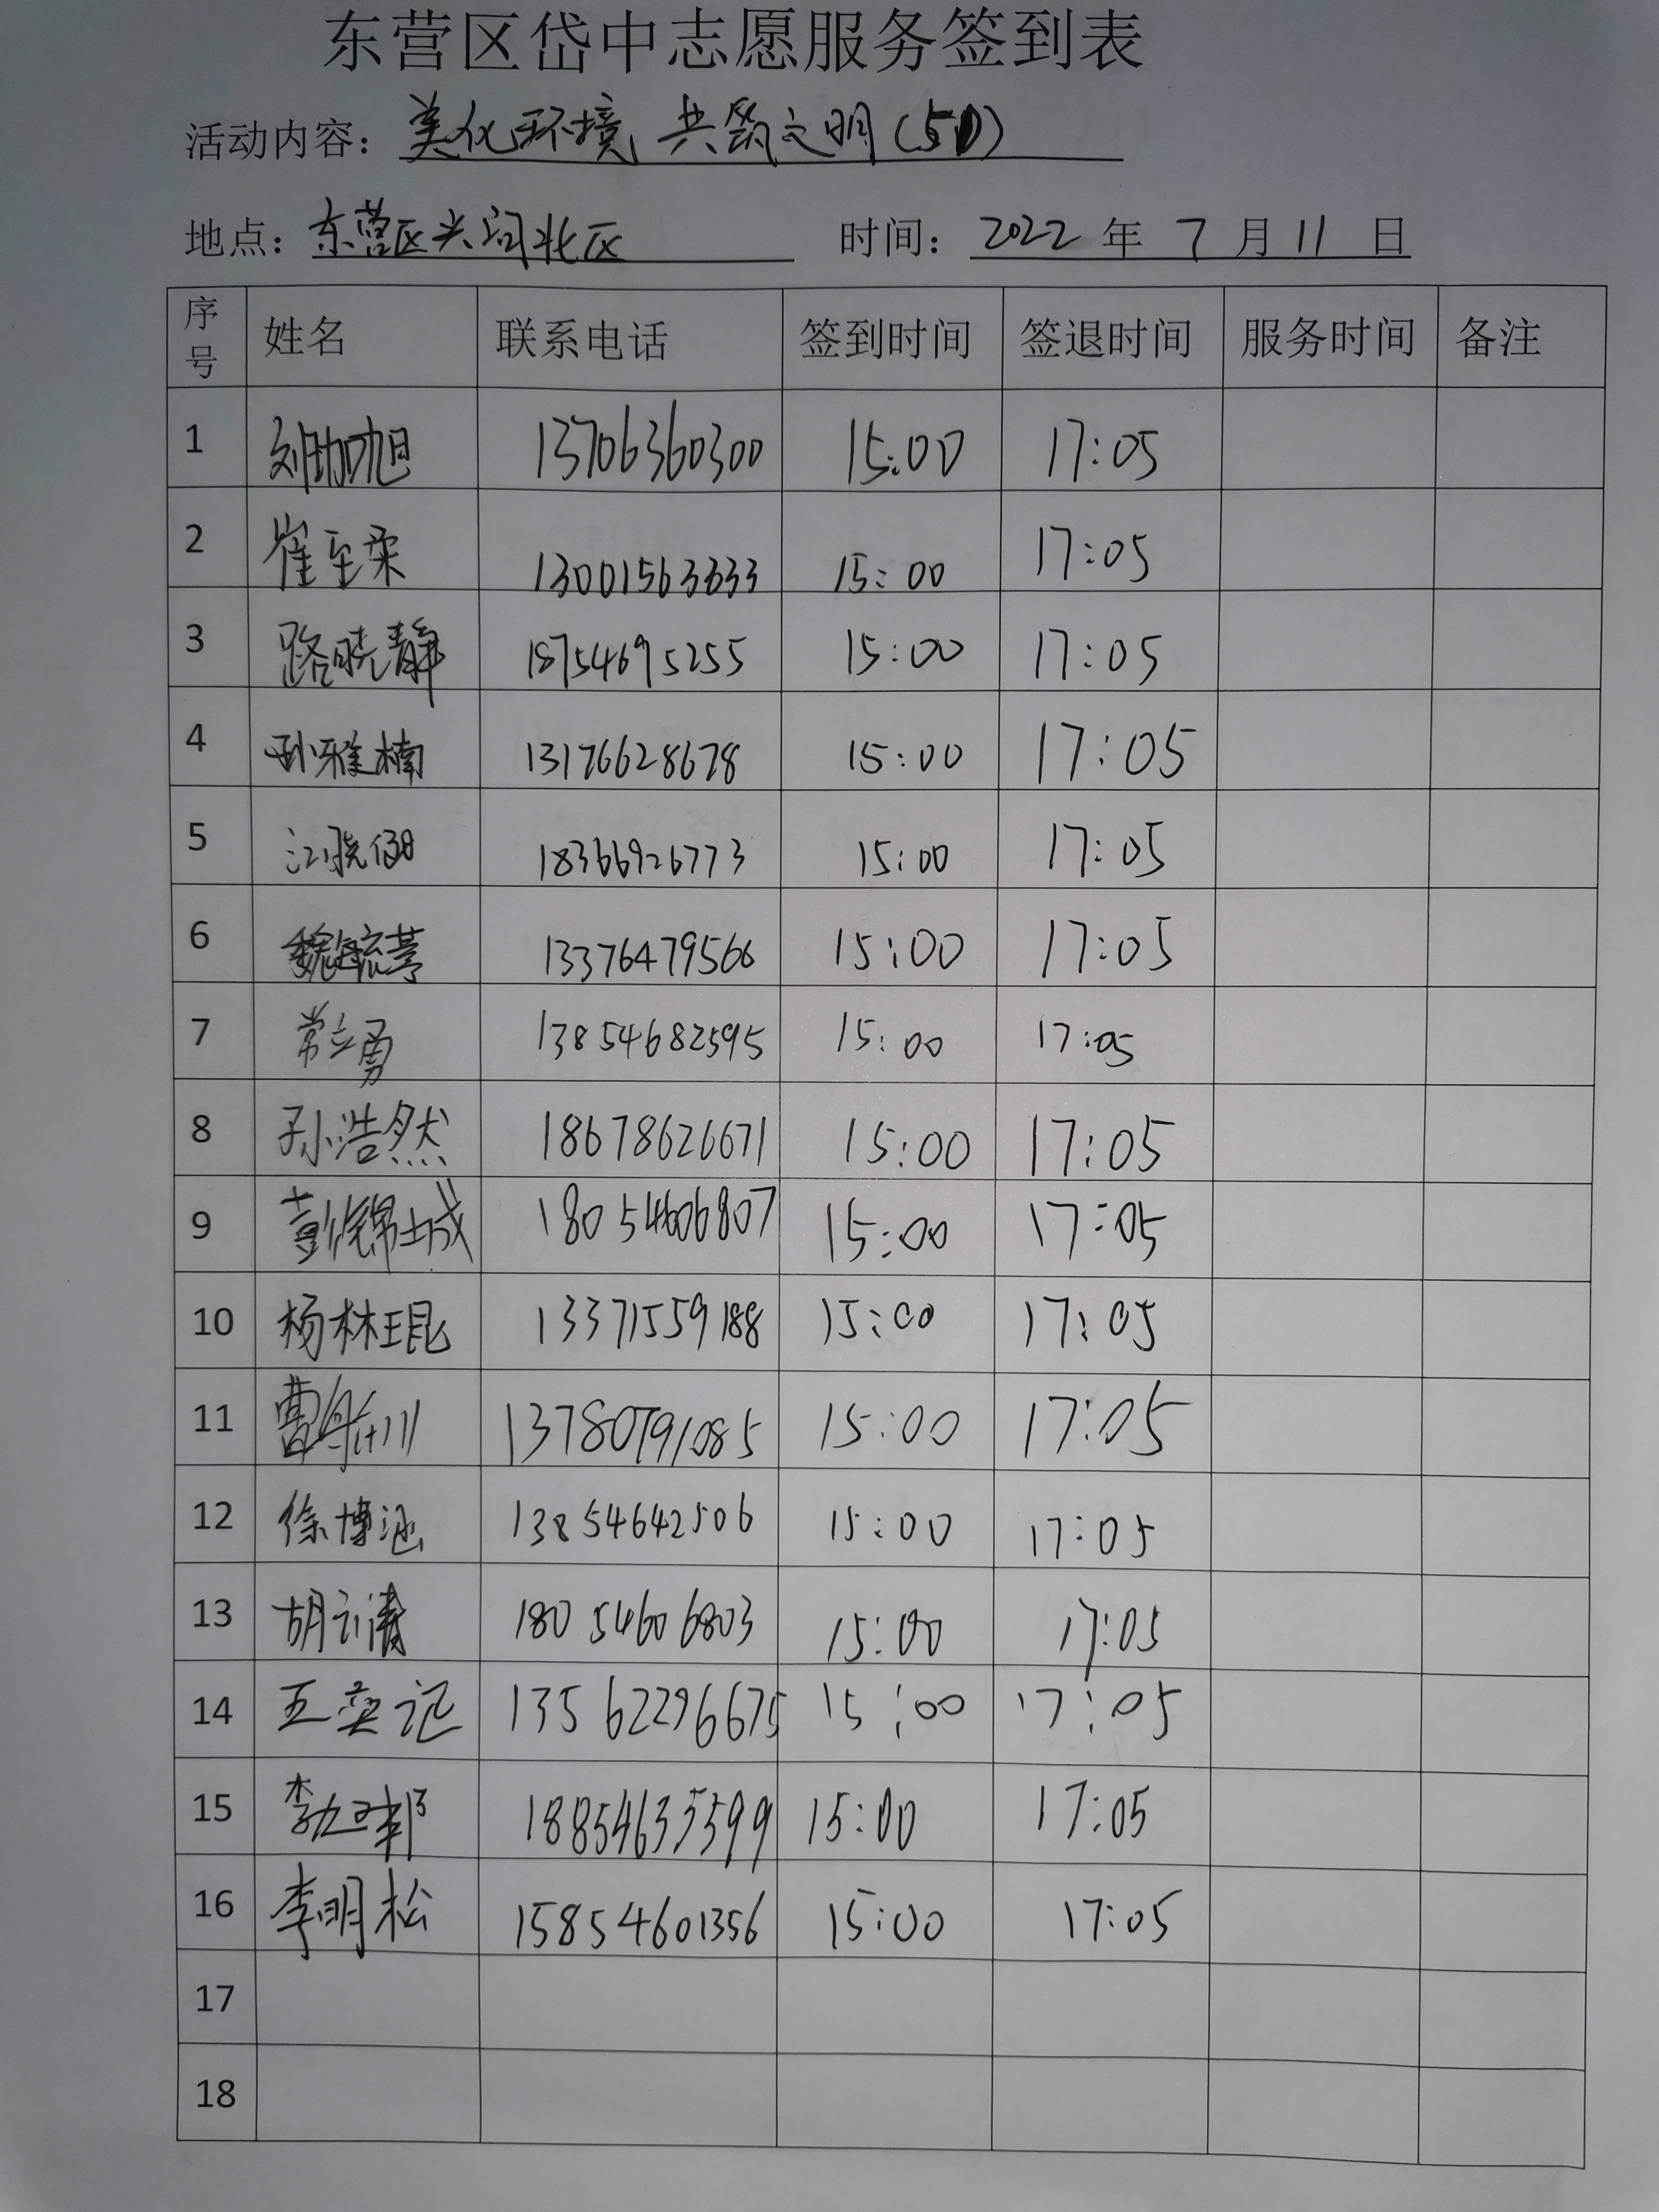 东营区岱中志愿服务签到表
活动内容：美化环境 共筑文明(51)
地点：东营区兴河北区 时间：2022 年 7 月 11 日
序号 姓名 联系电话 签到时间 签退时间 服务时间 备注
1 刘旭 13706360300 15:00 17:05
2 崔至柔 13001563633 15:00 17:05
3 路晓静 18754695255 15:00 17:05
4 孙雅楠 13176628678 15:00 17:05
5 江晓 18366926773 15:00 17:05
6 魏毓莩 13376479566 15:00 17:05
7 常立勇 13854682595 15:00 17:05
8 孙浩然 18678626671 15:00 17:05
9 彭锦城 18054606807 15:00 17:05
10 杨林琨 13371559188 15:00 17:05
11 曹 川 13780791085 15:00 17:05
12 徐博涵 13854642506 15:00 17:05
13 胡 清 18054606803 15:00 17:05
14 王奕记 13562296675 15:00 17:05
15 李 邦 18854635599 15:00 17:05
16 李明松 15854601356 15:00 17:05
17
18